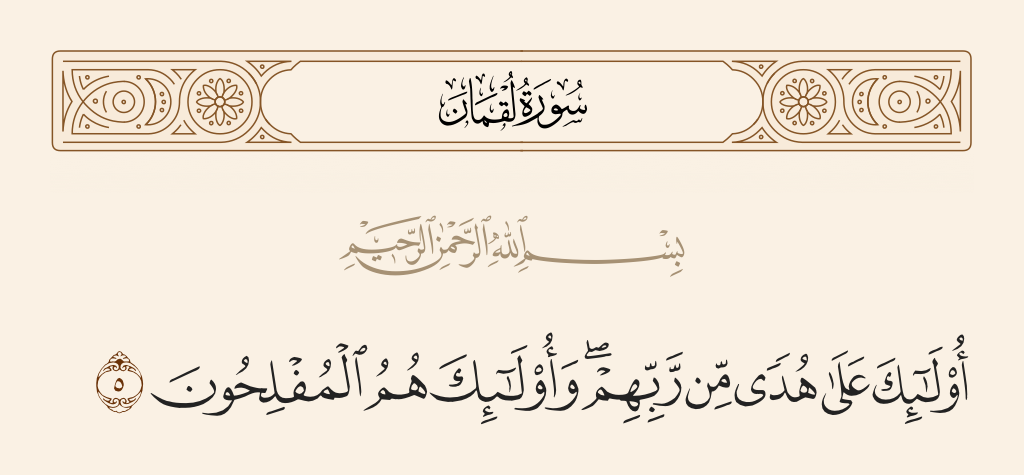 سُورَةُ لُقْمَان
بِسْمِ ٱللَّهِ ٱلرَّحْمَٰنِ ٱلرَّحِيمِ
أُو۟لَٰٓئِكَ عَلَىٰ هُدًى مِّن رَّبِّهِمْ ۖ وَأُو۟لَٰٓئِكَ هُمُ ٱلْمُفْلِحُونَ ٥